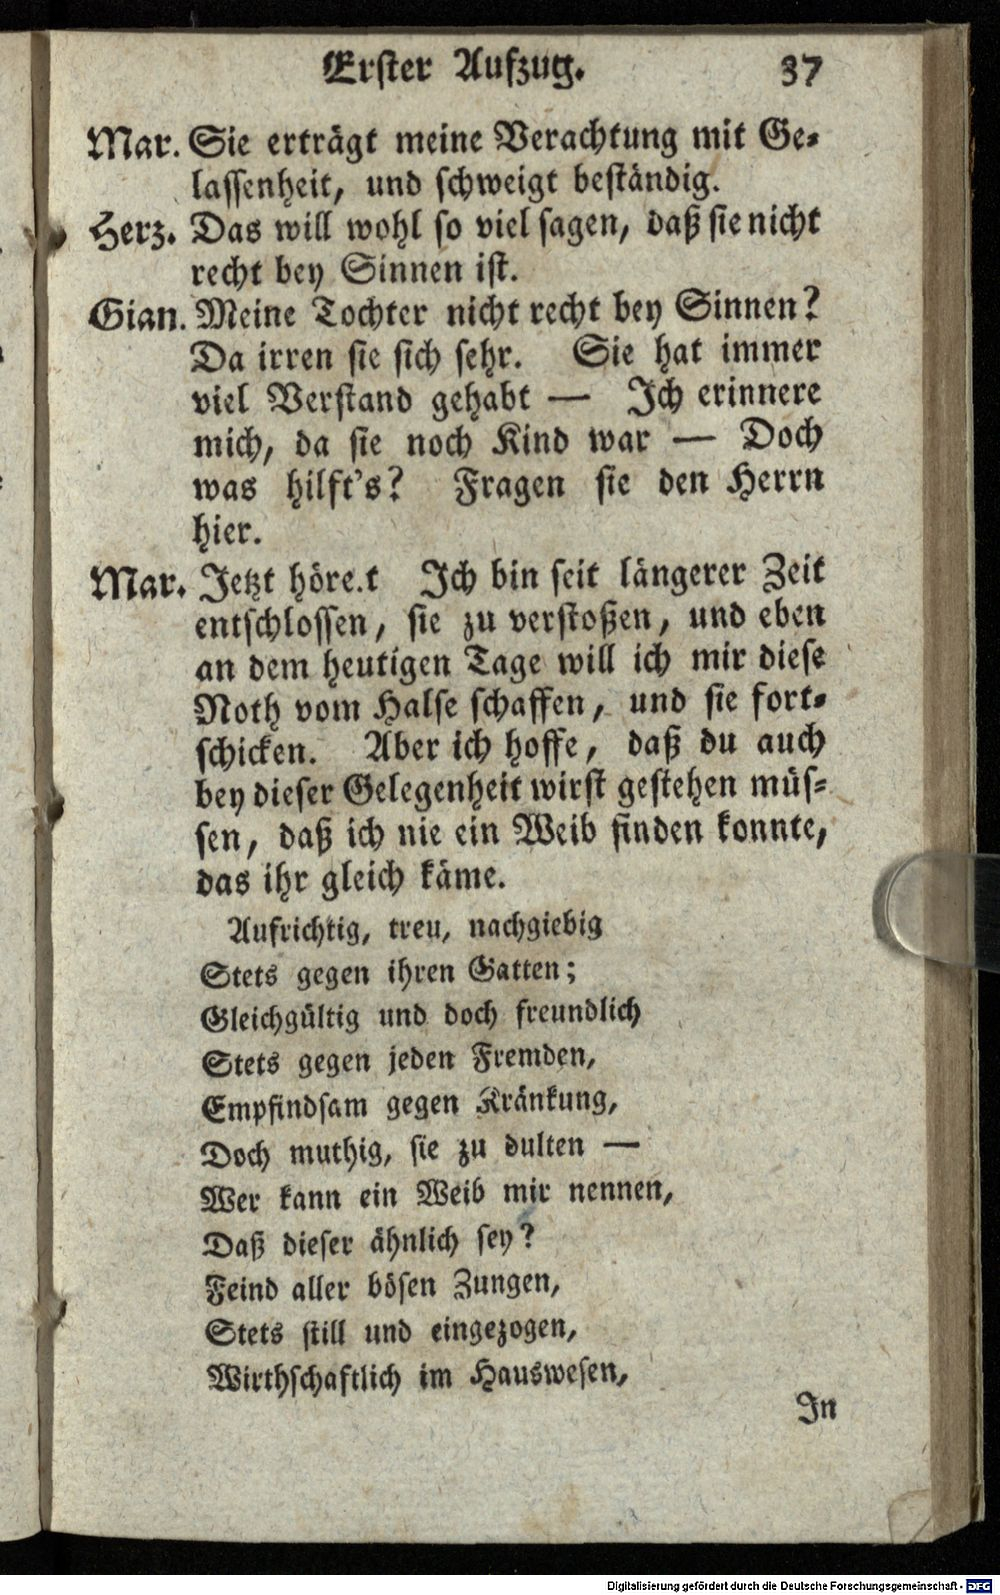 Erster Aufzug. 37
Mar. Sie erträgt meine Verachtung mit Ge-
lassenheit, und schweigt beständig.
Herz. Das will wohl so viel sagen, daß sie nicht
recht bey Sinnen ist.
Gian. Meine Tochter nicht recht bey Sinnen?
Da irren sie sich sehr. Sie hat immer
viel Verstand gehabt — Ich erinnere
mich, da sie noch Kind war — Doch
was hilft's? Fragen sie den Herrn
hier.
Mar. Jetzt höre.t Ich bin seit längerer Zeit
entschlossen, sie zu verstoßen, und eben
an dem heutigen Tage will ich mir diese
Noth vom Halse schaffen, und sie fort-
schicken. Aber ich hoffe, daß du auch
bey dieser Gelegenheit wirst gestehen müs-
sen, daß ich nie ein Weib finden konnte,
das ihr gleich käme.
Aufrichtig, treu, nachgiebig
Stets gegen ihren Gatten;
Gleichgültig und doch freundlich
Stets gegen jeden Fremden,
Empfindsam gegen Kränkung,
Doch muthig, sie zu dulten —
Wer kann ein Weib mir nennen,
Daß dieser ähnlich sey?
Feind aller bösen Zungen,
Stets still und eingezogen,
Wirthschaftlich im Hauswesen,
In
Digitalisierung gefördert durch die Deutsche Forschungsgemeinschaft - DFG